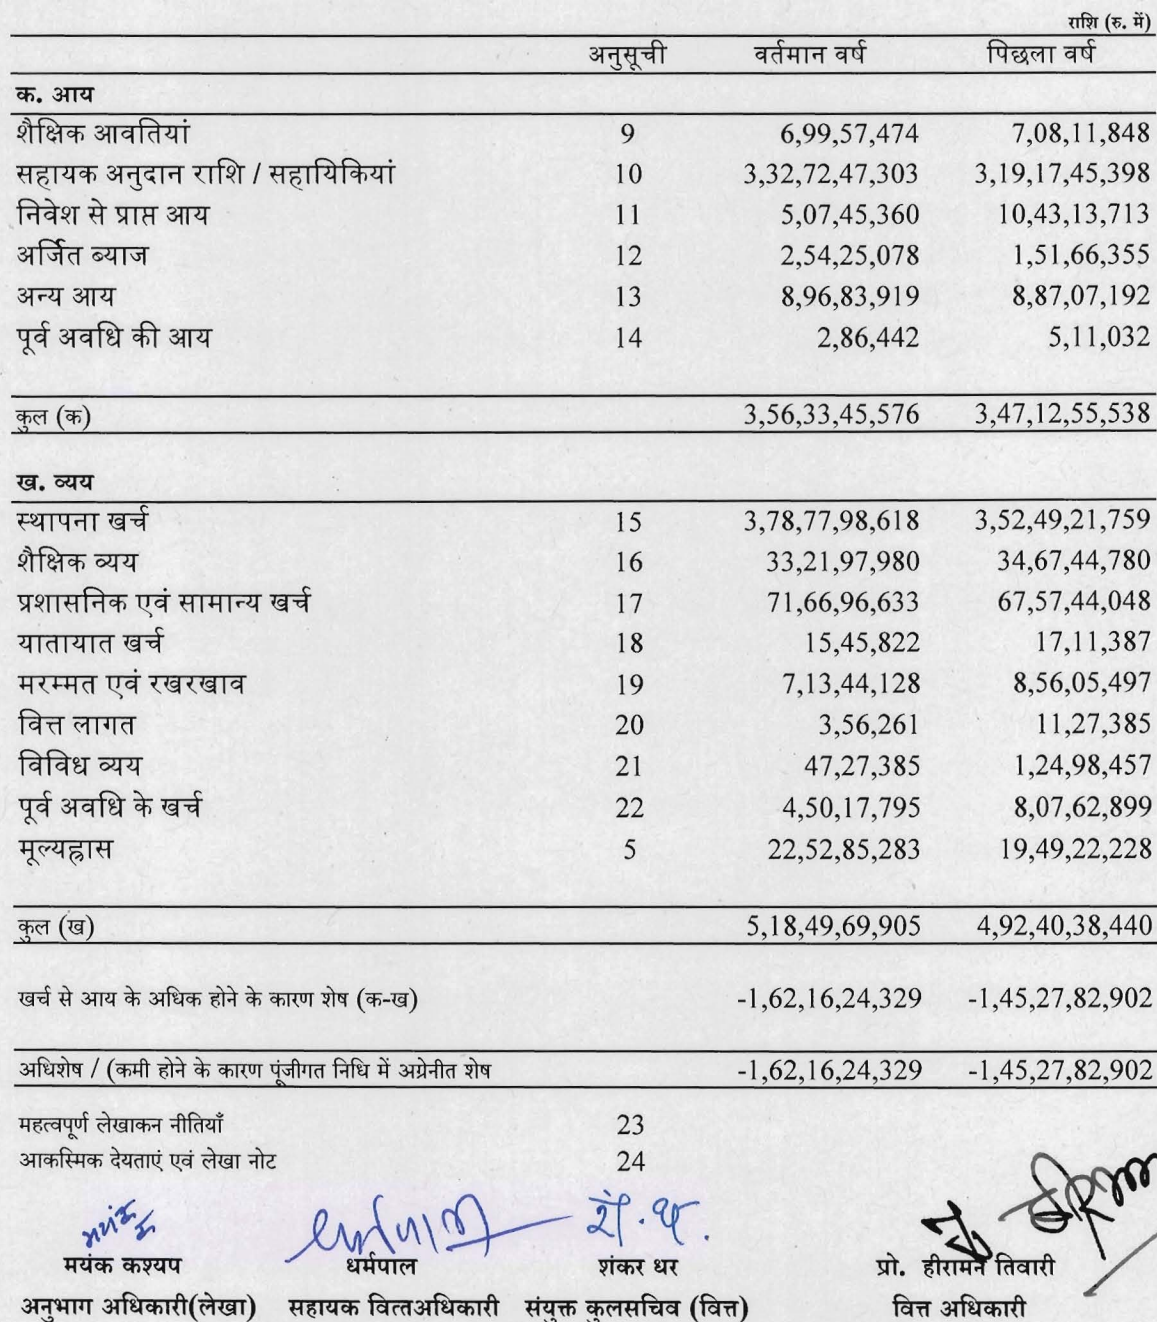 राशि (रु. में)
अनुसूची वर्तमान वर्ष पिछला वर्ष
क. आय
शैक्षिक आवतियां 9 6,99,57,474 7,08,11,848
सहायक अनुदान राशि / सहायिकियां 10 3,32,72,47,303 3,19,17,45,398
निवेश से प्राप्त आय 11 5,07,45,360 10,43,13,713
अर्जित ब्याज 12 2,54,25,078 1,51,66,355
अन्य आय 13 8,96,83,919 8,87,07,192
पूर्व अवधि की आय 14 2,86,442 5,11,032
कुल (क) 3,56,33,45,576 3,47,12,55,538
ख. व्यय
स्थापना खर्च 15 3,78,77,98,618 3,52,49,21,759
शैक्षिक व्यय 16 33,21,97,980 34,67,44,780
प्रशासनिक एवं सामान्य खर्च 17 71,66,96,633 67,57,44,048
यातायात खर्च 18 15,45,822 17,11,387
मरम्मत एवं रखरखाव 19 7,13,44,128 8,56,05,497
वित्त लागत 20 3,56,261 11,27,385
विविध व्यय 21 47,27,385 1,24,98,457
पूर्व अवधि के खर्च 22 4,50,17,795 8,07,62,899
मूल्यह्रास 5 22,52,85,283 19,49,22,228
कुल (ख) 5,18,49,69,905 4,92,40,38,440
खर्च से आय के अधिक होने के कारण शेष (क-ख) -1,62,16,24,329 -1,45,27,82,902
अधिशेष / (कमी होने के कारण पूंजीगत निधि में अग्रेनीत शेष -1,62,16,24,329 -1,45,27,82,902
महत्वपूर्ण लेखाकन नीतियाँ 23
आकस्मिक देयताएं एवं लेखा नोट 24
मयंक कश्यप धर्मपाल शंकर धर प्रो. हीरामन तिवारी
अनुभाग अधिकारी(लेखा) सहायक वित्तअधिकारी संयुक्त कुलसचिव (वित्त) वित्त अधिकारी